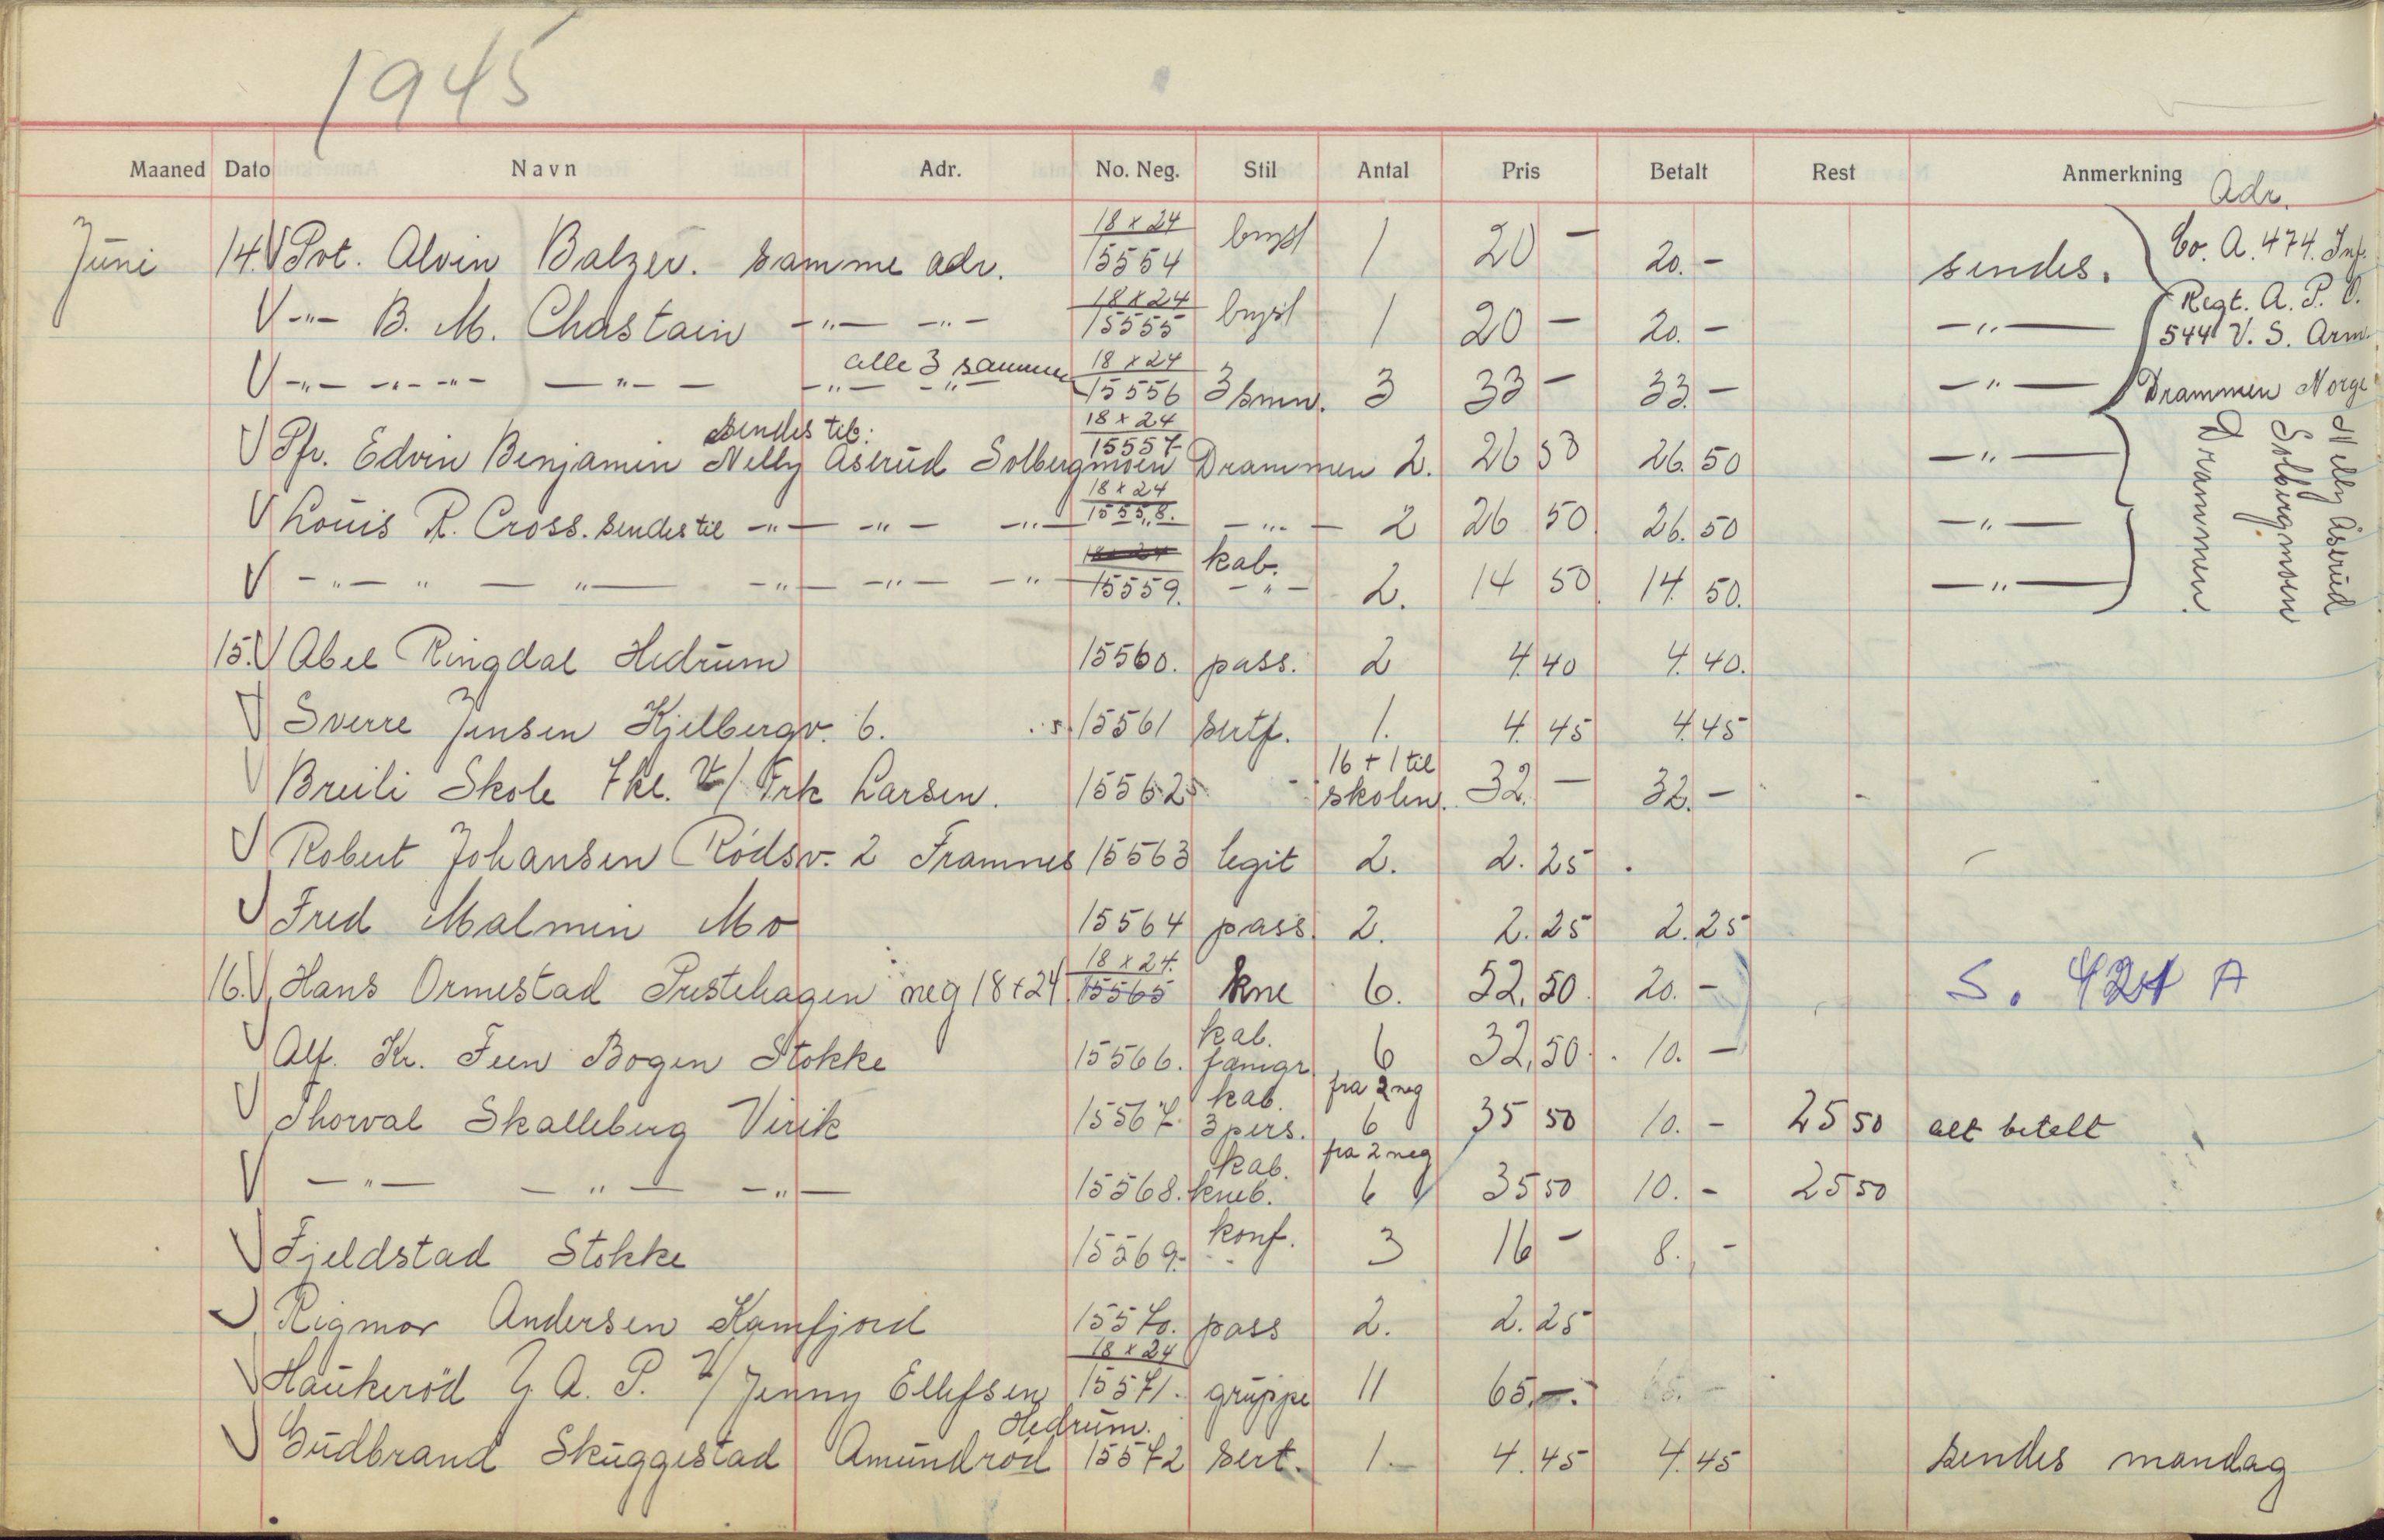 1945
Maaned Dato Navn Adr. No. Neg. Stil Antal Pris Betalt Rest Anmerkning
Adr.
Juni 14. V Pvt. Alvin Balzer. samme adr. 18 x 24 15554 bryst 1 20 - 20. - sendes. Co. A. 474. Inf.
V -"- B. M. Chastain -"- -"- 18 x 24 15555 bryst 1 20 - 20. - -"- Regt. A. P. O.
544 U. S. Arm.
V -"- -"- -"- -"- alle 3 sammen -"- -"- 18 x 24 15556 3 smn. 3 33 - 33. - -"- Drammen Norge
V Pfr. Edvin Benjamin sendes til: Nelly Åserud Solbergmoen 18 x 24 15557 Drammen 2. 26 50 26. 50 -"-
Nelly Åserud
Solbergmoen
Drammen.
V Louis R. Cross. sendes til -"- -"- -"- 18 x 24 15558. -"- 2 26 50 26. 50 -"-
V -"- " -"- -"- -"- -"- 18 x 24 15559. kab. -"- 2. 14 50 14. 50. -"-
15. V Abel Ringdal Hedrum 15560. pass. 2 4. 40 4. 40.
V Sverre Jensen Kjelbergv. 6. 15561 sertf. 1. 4. 45 4. 45
V Breili Skole 7 kl. v/ Frk Larsen. 15562 16 + 1 til skolen. 32. - 32. -
V Robert Johansen Rødsv. 2 Framnes 15563 legit 2. 2. 25
V Fred Malmin Mo 15564 pass. 2. 2. 25 2. 25
16. V Hans Ormestad Prestehagen neg 18 x 24 18 x 24. 15565 kne 6. 52, 50. 20. - S. 421 A
V Alf. Kr. Feen Bogen Stokke 15566. kab. famgr. 6 32, 50. 10. -
V Thorval Skalleberg Virik 15567. kab. 3 pers. fra 2 neg 6 35 50 10. - 25 50 alt betalt
V -"- -"- -"- 15568. kab. kneb. fra 2 neg 6 35 50 10. - 25 50
V Fjeldstad Stokke 15569. konf. 3 16 - 8. -
V Rigmor Andersen Kamfjord 15570. pass 2. 2. 25
V Haukerød Y. A. P. v/ Jenny Ellefsen 18 x 24 15571. gruppe 11 65. - 65. -
V Gudbrand Skuggestad Amundrød Hedrum. 15572 sert. 1. 4. 45 4. 45 sendes mandag